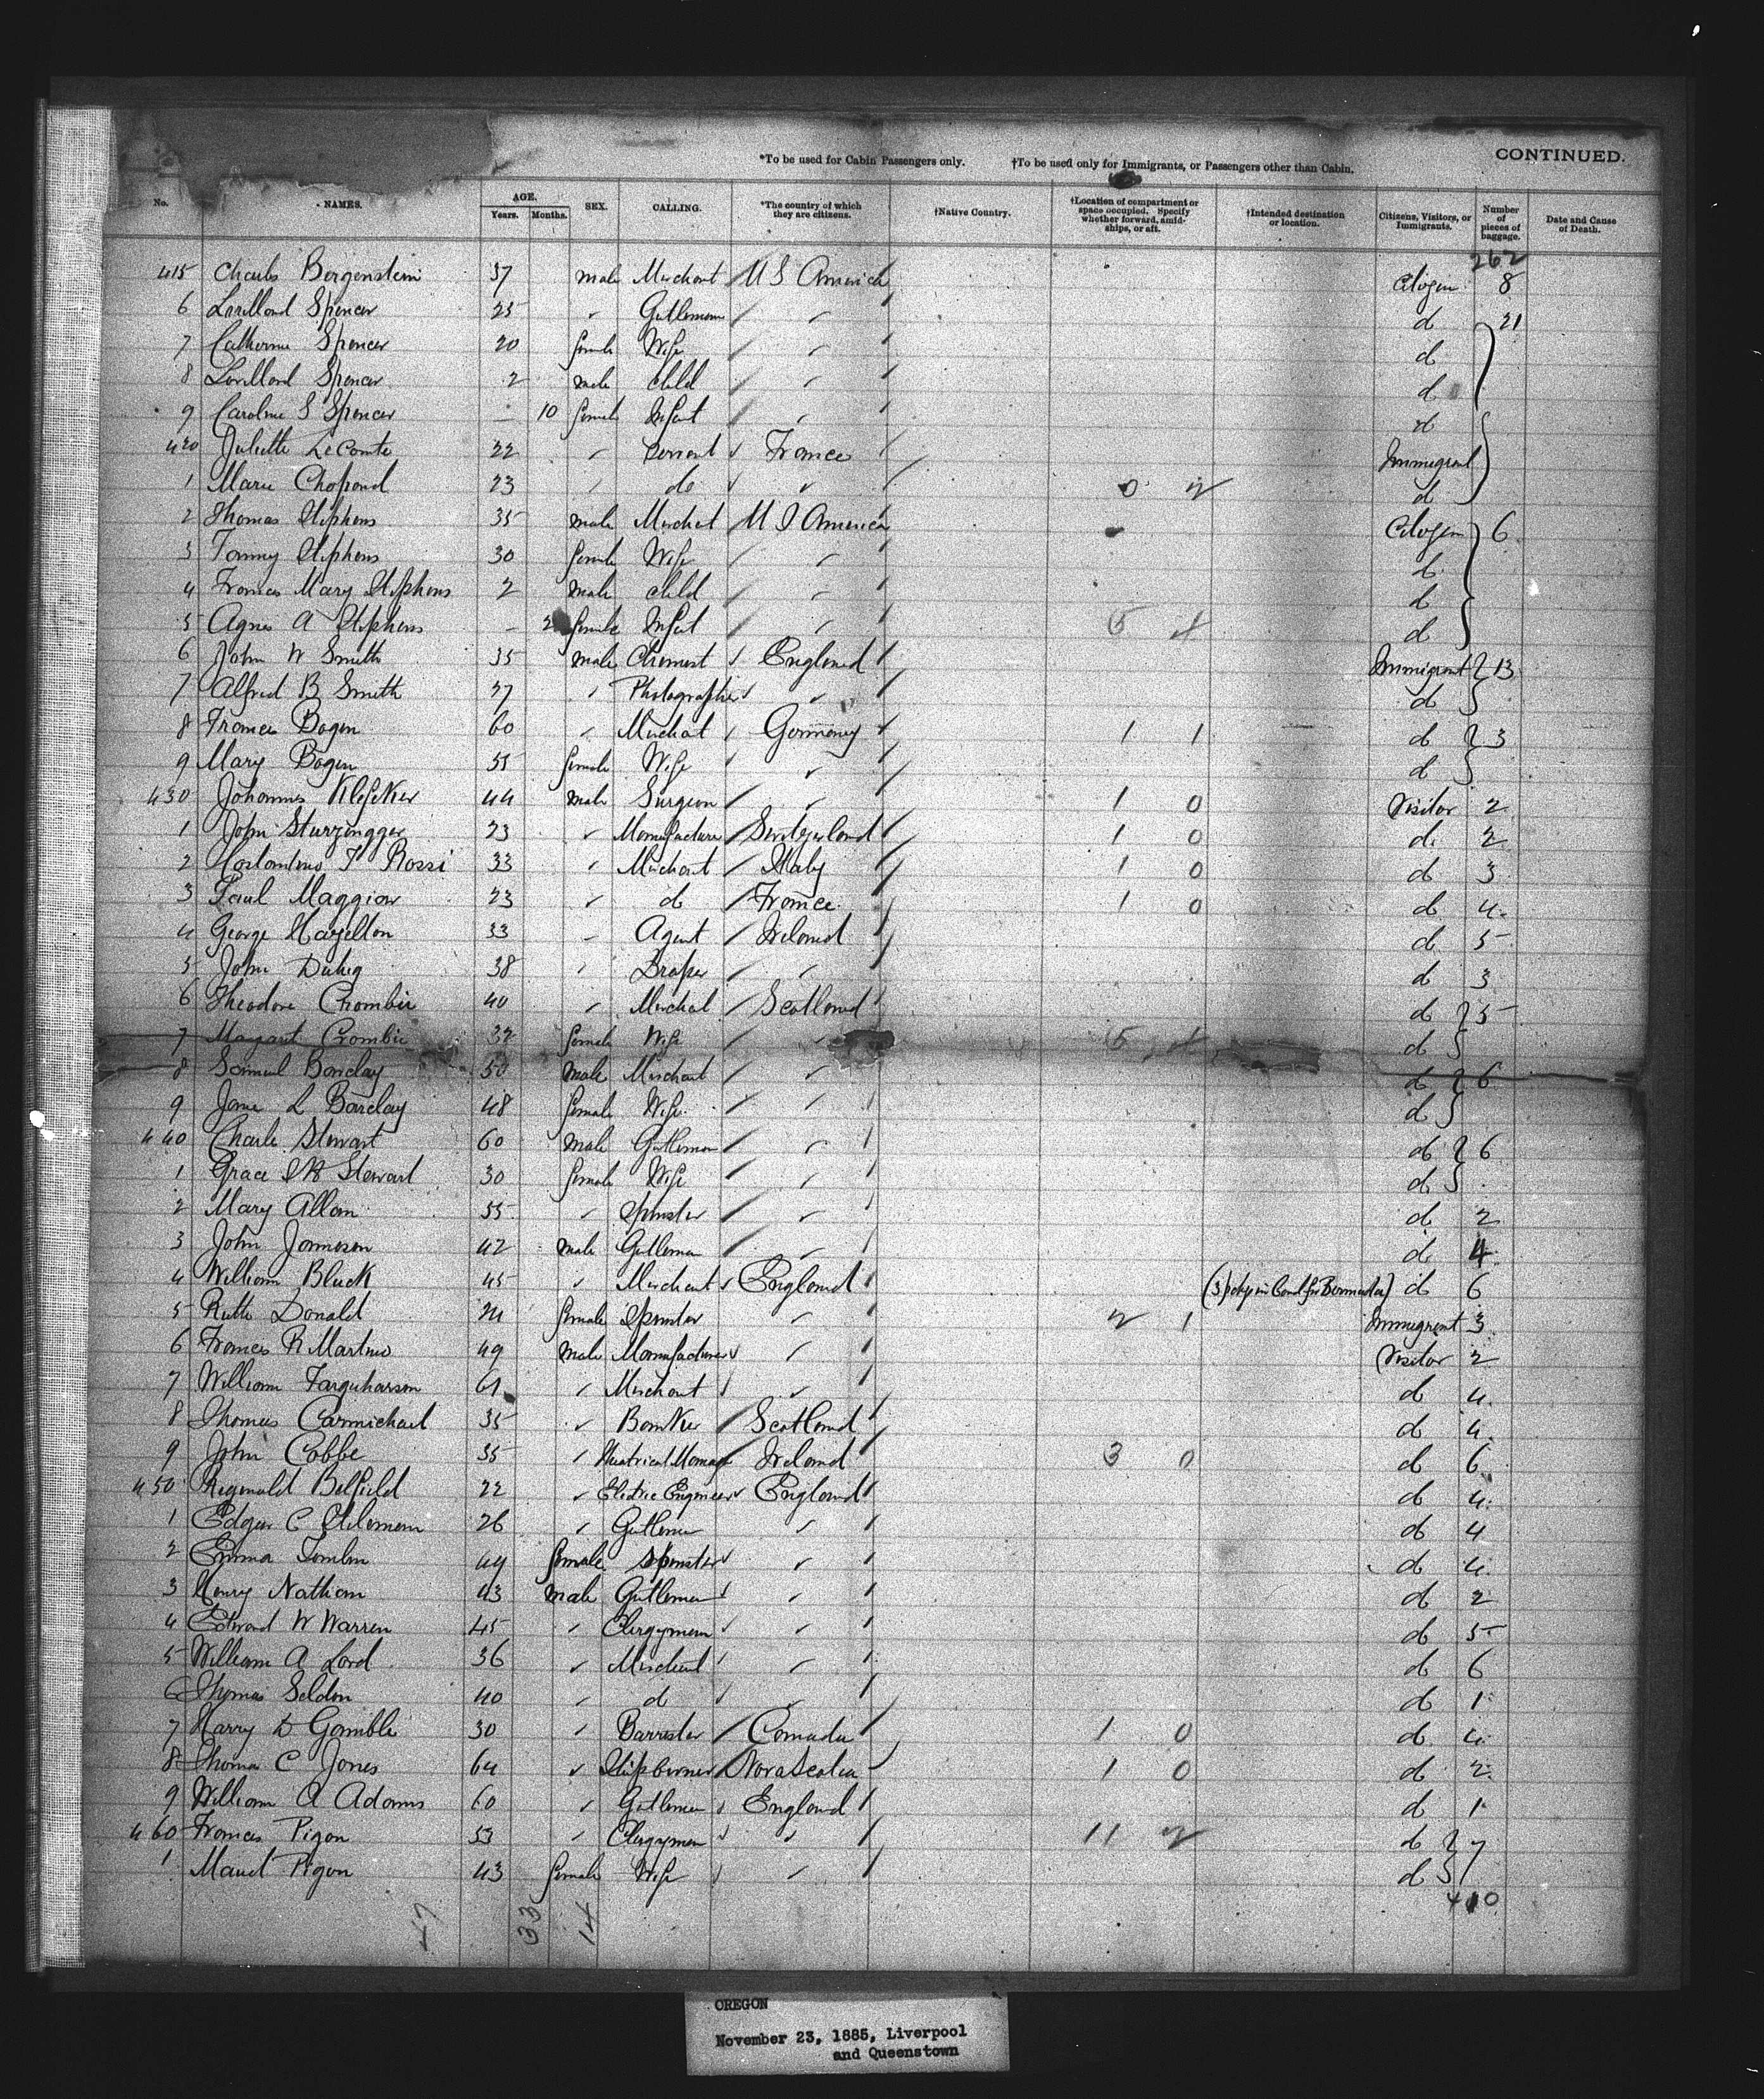 *To be used for Cabin Passengers only. †To be used only for Immigrants, or Passengers other than Cabin. CONTINUED.
No. NAMES. AGE. Years. Months. SEX. CALLING. *The country of which they are citizens. †Native Country. †Location of compartment or space occupied. Specify whether forward, amidships, or aft. †Intended destination or location. Citizens, Visitors, or Immigrants. Number of pieces of baggage. Date and Cause of Death.
262
415 Charles Bergenstein 37 male Merchant U S America Citizen 8
6 Lorillard Spencer 25 " Gentleman " d 21
7 Catherine Spencer 20 female Wife " d
8 Lorillard Spencer 2 male child " d
9 Caroline S Spencer - 10 female Infant " d
420 Juliette LeComte 22 " Servant France Immigrant
1 Marie 23 " do " 0 2 d
2 Thomas Stephens 35 male Merchant U S America Citizen 6
3 Fanny Stephens 30 female Wife " d
4 Frances Mary Stephens 2 male child " d
5 Agnes A Stephens - 2 female Infant " 5 4 d
6 John W Smith 35 male Chemist England Immigrant 13
7 Alfred B Smith 37 " Photographer " d
8 Frances Bogen 60 " Merchant Germany 1 1 d 3
9 Mary Bogen 55 female Wife " d
430 Johannes 44 male Surgeon " 1 0 Visitor 2
1 John Sturzingger 23 " Manufacturer Switzerland 1 0 d 2
2 Rossi 33 " Merchant Italy 1 0 d 3
3 Paul Maggiar 23 " do France 1 0 d 4
4 George Hazelton 33 " Agent Ireland d 5
5 John Duhig 38 " Draper " d 3
6 Theodore Crombie 40 " Merchant Scotland d 5
7 Margaret Crombie 32 female Wife " 5 4 d
8 Samuel Barclay 50 male Merchant " d 6
9 Jane L Barclay 48 female Wife " d
440 Charles Stewart 60 male Gentleman " d 6
1 Grace Stewart 30 female Wife " d
2 Mary Allan 55 " Spinster " d 2
3 John Jameson 42 male Gentleman " d 4
4 William Bluck 45 " Merchant England d 6
5 Ruth Donald 21 female Spinster " 2 1 Immigrant 3
6 Frances R Martino 49 male Manufacturer " Visitor 2
7 William Farquharson 61 " Merchant " d 4
8 Thomas Carmichael 35 " Banker Scotland d 4
9 John Cobbe 35 " Theatrical Manager Ireland 3 0 d 6
450 Reginald Belfield 22 " Electric Engineer England d 4
1 Edgar C 26 " Gentleman " d 4
2 Emma Tomlin 44 female Spinster " d 4
3 Henry Nathan 43 male Gentleman " d 2
4 Edward W Warren 45 " Clergyman " d 5
5 William A Lord 36 " Merchant " d 6
6 Thomas Seldon 40 " d " d 1
7 Harry D Gamble 30 " Barrister Canada 1 0 d 4
8 Thomas C Jones 64 " Shipowner Nova Scotia 1 0 d 2
9 William A Adams 60 " Gentleman England d 1
460 Frances Pigou 53 " Clergyman " 11 2 d 7
1 Maud Pigou 43 female Wife " d
410
47 33 14
OREGON
November 23, 1885, Liverpool
and Queenstown